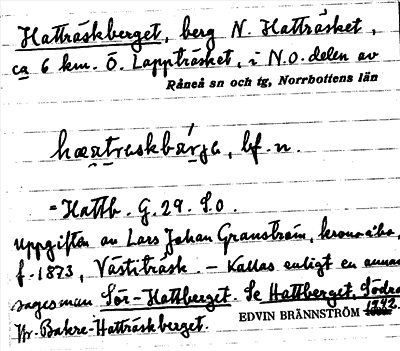 Hatträskberget, berg N. Hatträsket,
ca 6 km. Ö. Lappträsket, i N.O. delen av
Råneå sn och tg, Norrbottens län
bf. n.
= Hattb. G. 29. S.o.
Uppgiften av Lars Johan Granström,
f. 1873, Västiträsk. – Kallas enligt en annan
sagesman Sör-Hattberget. Se Hattberget, Södra
Jfr. Bakre-Hatträskberget.
EDVIN BRÄNNSTRÖM 1942